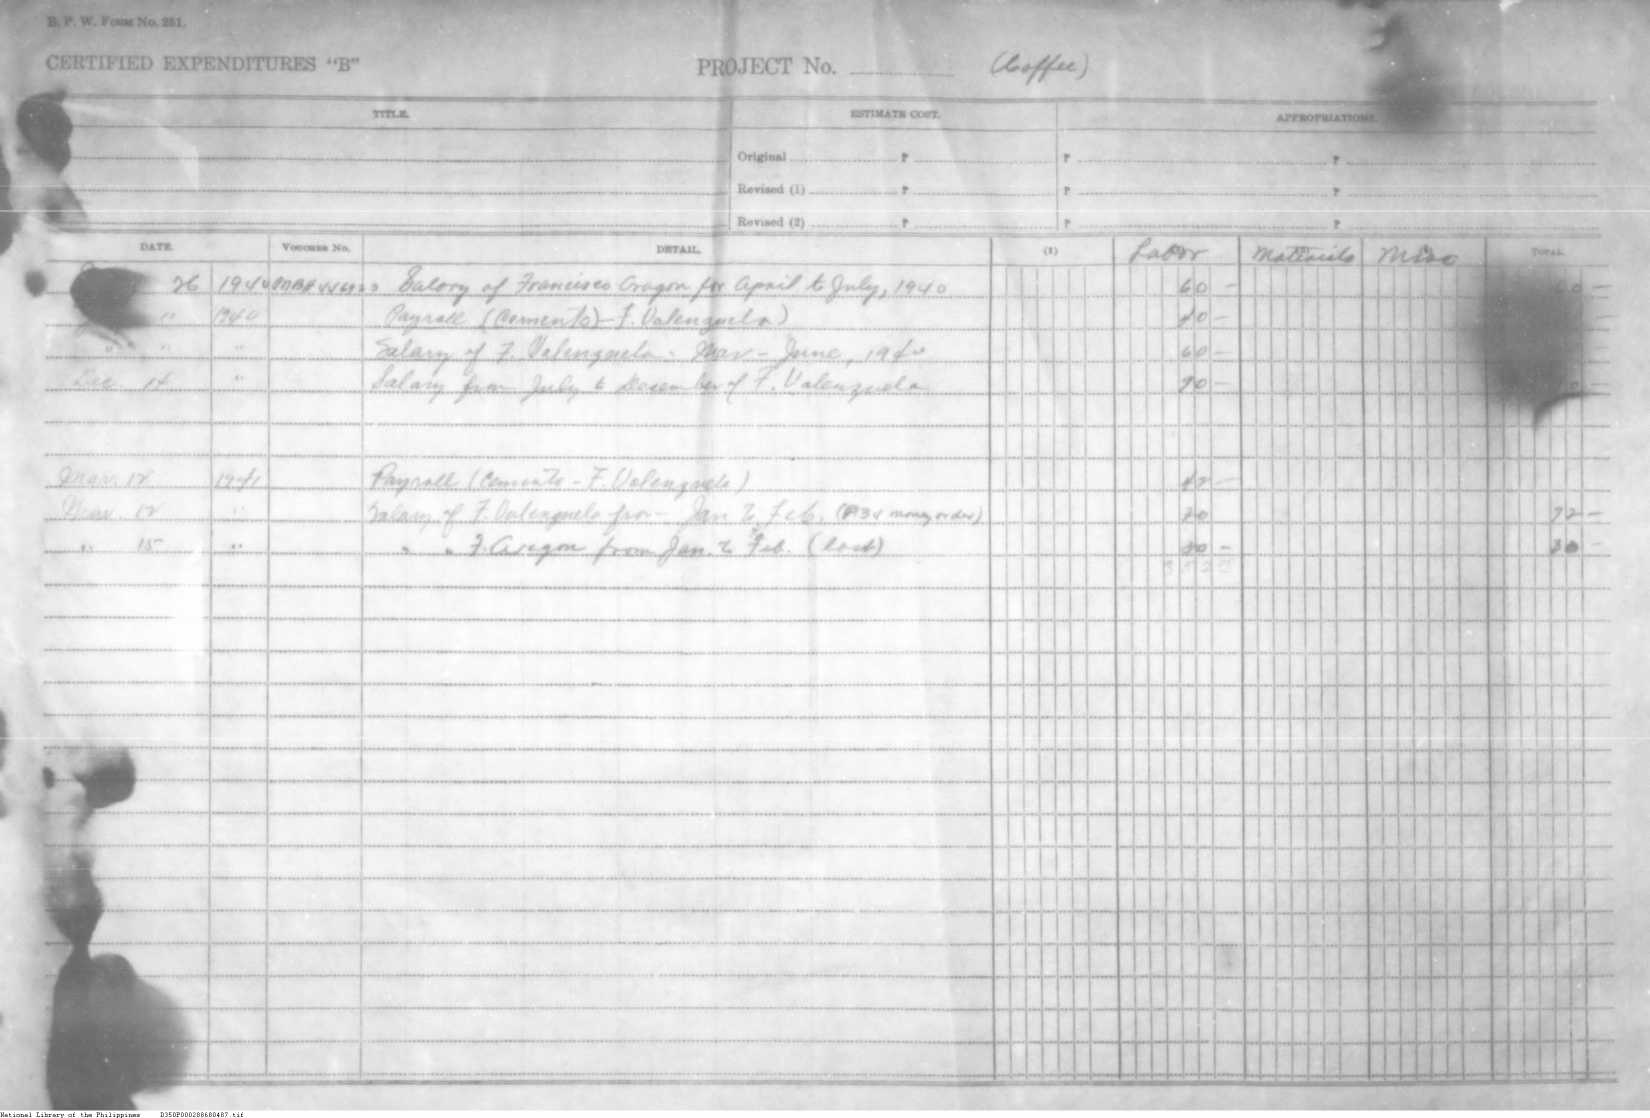 B. P. W. Form No. 251.
CERTIFIED EXPENDITURES "B" PROJECT No. (Coffee)
TITLE. ESTIMATE COST. APPROPRIATIONS.
Original ₱ ₱ ₱
Revised (1) ₱ ₱ ₱
Revised (2) ₱ ₱ ₱
DATE. VOUCHER No. DETAIL. (1) Labor Materials Misc TOTAL.
26 1940 Salary of Francisco Aragon for April to July, 1940 60 - 60 -
" 1940 Payroll (Cemento - F. Valenzuela) -
" " " Salary of F. Valenzuela - Mar - June, 1940 60 -
Dec. 14 " Salary from July to December of F. Valenzuela 90 -
Mar. 12 1941 Payroll (Cemento - F. Valenzuela) 42 -
Mar. 12 " Salary of F. Valenzuela from - Jan to Feb. (₱34 money order) 30 72 -
" 15 " " " F. Aragon from Jan. to Feb. (lost) 30 - 30 -
National Library of the Philippines D350P000288680487.tif